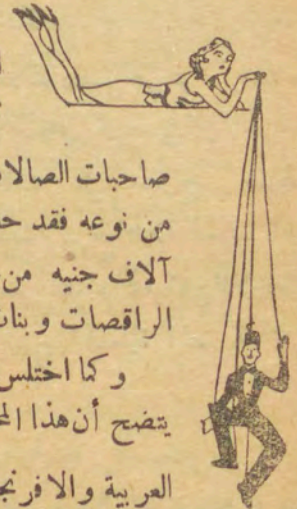 صاحبات الصالات
من نوعه فقد
آلاف جنيه من
الراقصات وبنات
وكما اختلس
يتضح أن هذا
العربية والافرنجـ